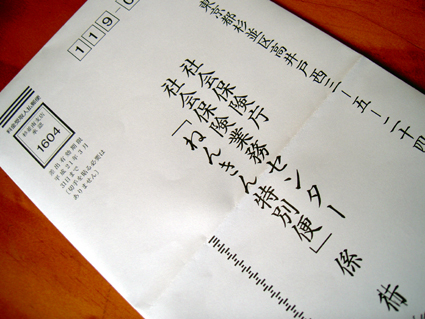 119-0
東京都杉並区高井戸西三−五−二十四
社会保険庁
社会保険業務センター
「ねんきん特別便」係 行
料金受取人払郵便
杉並南支店
承認
1604
差出有効期間
平成21年3月
31日まで
(切手を貼る必要は
ありません)